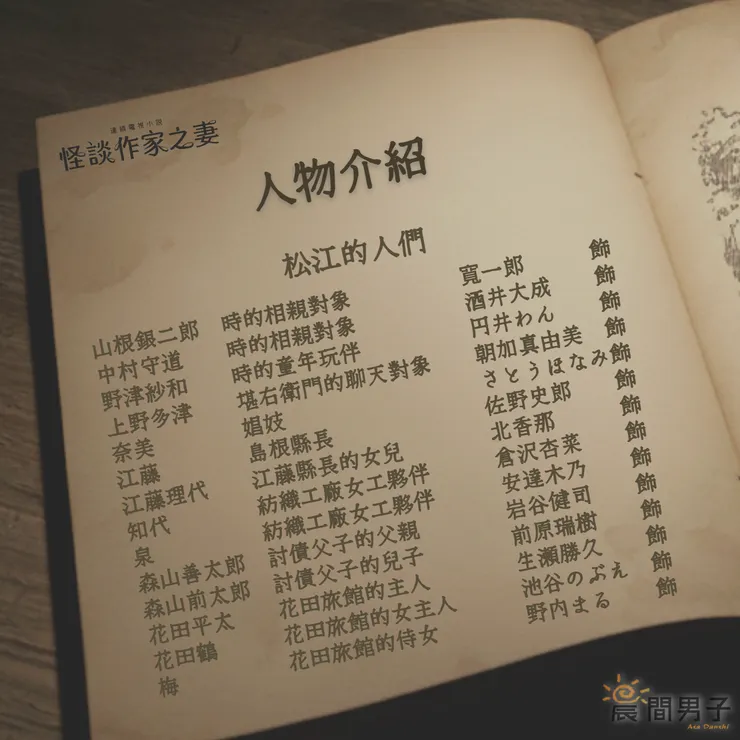 連續電視小說
怪談作家之妻
人物介紹
松江的人們
山根銀二郎 時的相親對象 寬一郎 飾
中村守道 時的相親對象 酒井大成 飾
野津紗和 時的童年玩伴 円井わん 飾
上野多津 堪右衛門的聊天對象 朝加真由美 飾
奈美 娼妓 さとうほなみ 飾
江藤 島根縣長 佐野史郎 飾
江藤理代 江藤縣長的女兒 北香那 飾
知代 紡織工廠女工夥伴 倉沢杏菜 飾
泉 紡織工廠女工夥伴 安達木乃 飾
森山善太郎 討債父子的父親 岩谷健司 飾
森山前太郎 討債父子的兒子 前原瑞樹 飾
花田平太 花田旅館的主人 生瀬勝久 飾
花田鶴 花田旅館的女主人 池谷のぶえ 飾
梅 花田旅館的侍女 野内まる 飾
晨間男子
Asa Danshi